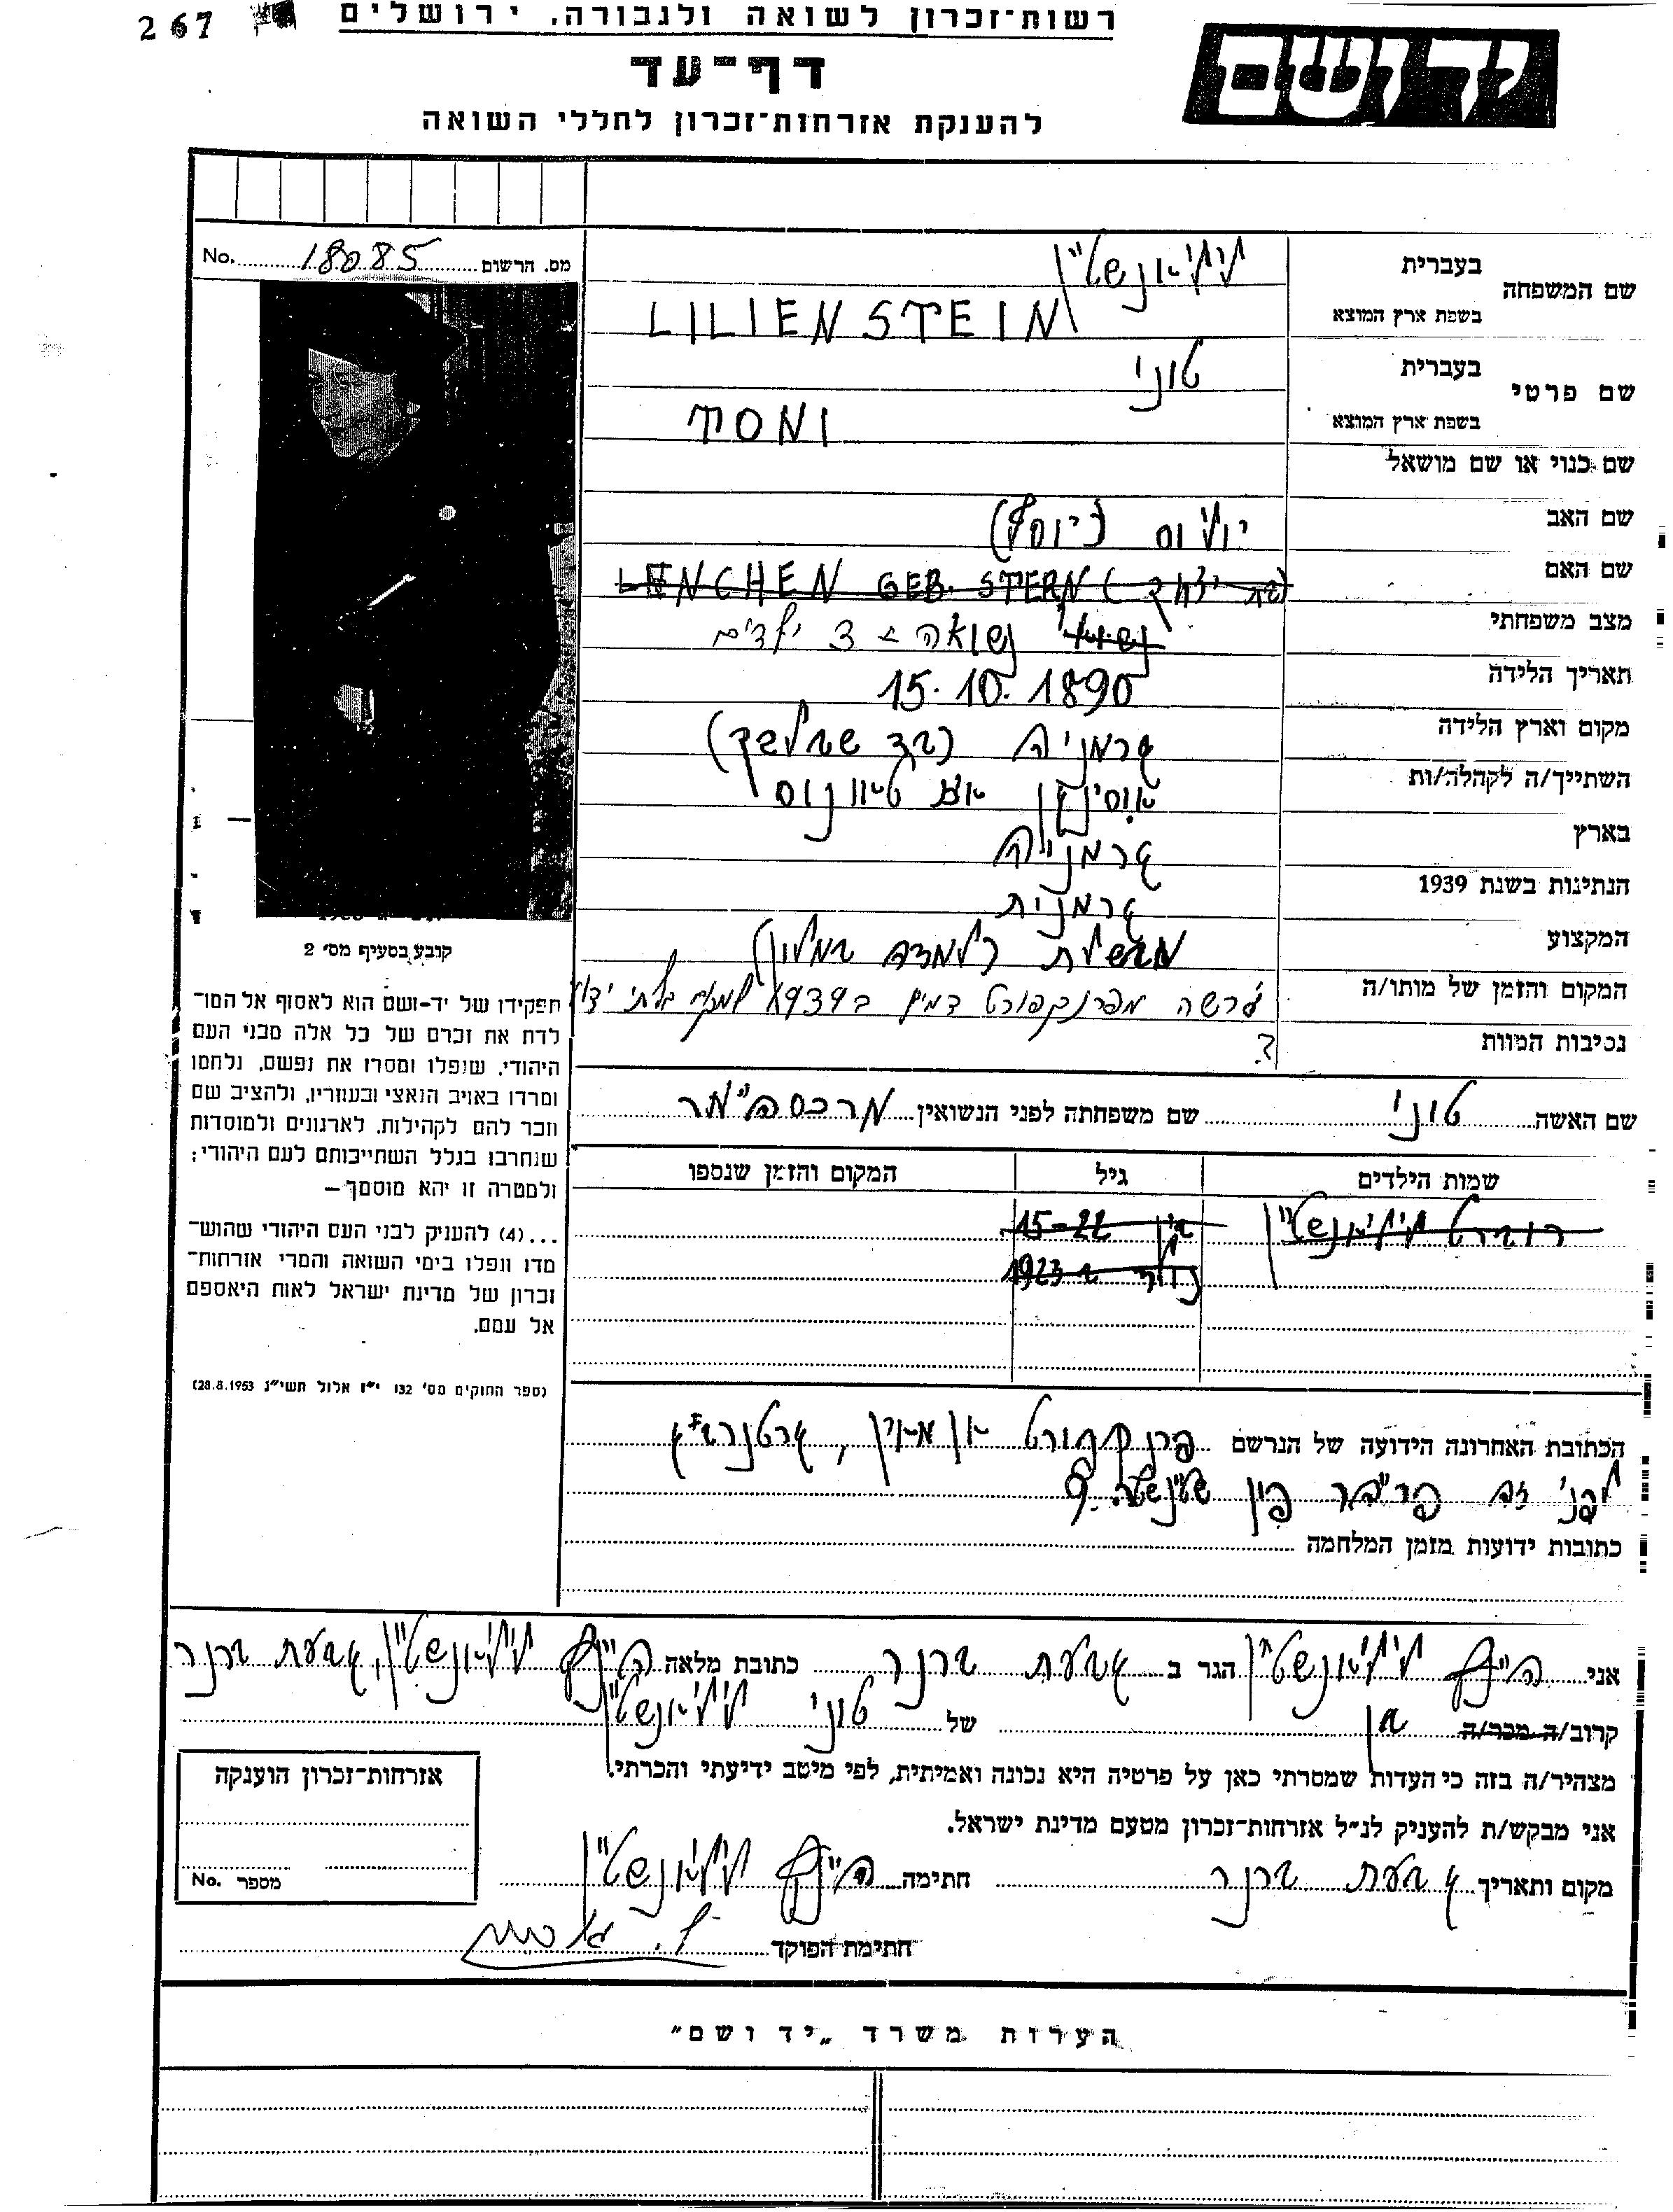 267
רשות־זכרון לשואה ולגבורה, ירושלים
דף־עד
להענקת אזרחות־זכרון לחללי השואה
יד ושם
מס. הרשום 18085 No.
שם המשפחה
בעברית ליליאנשטיין
בשפת ארץ המוצא LILIENSTEIN
שם פרטי
בעברית טוני
בשפת ארץ המוצא TONI
שם כנוי או שם מושאל
שם האב יוליוס (יוסף)
שם האם LENCHEN GEB. STERN (בת יצחק)
מצב משפחתי נשוי נשואה + 3 ילדים
תאריך הלידה 15.10.1890
מקום וארץ הלידה גרמניה (בד שוולבך)
השתייך/ה לקהלה/ות אוסינגן טאונוס
בארץ גרמניה
הנתינות בשנת 1939 גרמנית
המקצוע מבשלת (למדה במלון)
המקום והזמן של מותו/ה גרשה מפרנקפורט דמיין ב 1939 למקום בלתי ידוע
נסיבות המוות ?
שם האשה טוני שם משפחתה לפני הנשואין מרכסהיימר
שמות הילדים גיל המקום והזמן שנספו
רוברט ליליאנשטיין בין 15-22
נולד ב 1923
קובע בסעיף מס' 2
תפקידו של יד־ושם הוא לאסוף אל המו־
לדת את זכרם של כל אלה מבני העם
היהודי, שנפלו ומסרו את נפשם, נלחמו
ומרדו באויב הנאצי ובעוזריו, ולהציב שם
וזכר להם לקהילות, לארגונים ולמוסדות
שנחרבו בגלל השתייכותם לעם היהודי;
ולמטרה זו יהא מוסמך—
...(4) להעניק לבני העם היהודי שהוש־
מדו ונפלו בימי השואה והמרי אזרחות־
זכרון של מדינת ישראל לאות היאספם
אל עמם.
(ספר החוקים מס' 132 י"ז אלול תשי"ג 28.8.1953)
הכתובת האחרונה הידועה של הנרשם פרנקפורט און מאין, גרטנרוויג
לפני זה פרייהר פון שטיינשטר. 9
כתובות ידועות מזמן המלחמה
אני היינץ ליליאנשטיין הגר ב גבעת ברנר כתובת מלאה היינץ ליליאנשטיין, גבעת ברנר
קרוב/ה מכר/ה בן של טוני ליליאנשטיין
מצהיר/ה בזה כי העדות שמסרתי כאן על פרטיה היא נכונה ואמיתית, לפי מיטב ידיעתי והכרתי.
אני מבקש/ת להעניק לנ"ל אזרחות־זכרון מטעם מדינת ישראל.
מקום ותאריך גבעת ברנר חתימה היינץ ליליאנשטיין
חתימת הפוקד
אזרחות־זכרון הוענקה
מספר No.
הערות משרד „יד ושם"